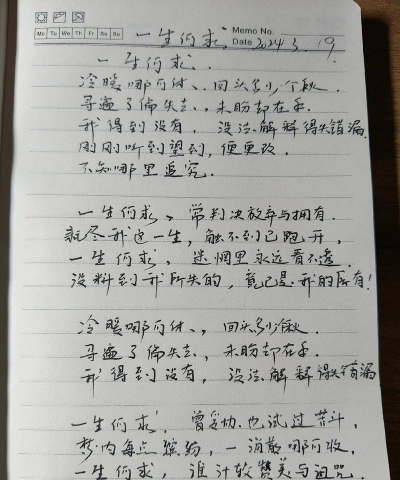 一生何求 Memo No.
Mo Tu We Th Fr Sa Su Date 2024.3.19
一生何求.
冷暖哪可休、回头多少个秋.
寻遍了偏失去,未盼却在手.
我得到没有,没法解释得失错漏.
刚刚听到望到,便更改.
不知哪里追究.
一生何求,常判决放弃与拥有.
耗尽我这一生,触不到已跑开,
一生何求,迷惘里永远看不透.
没料到我所失的,竟已是我的所有!
冷暖哪可休,回头多少个秋.
寻遍了偏失去,未盼却在手.
我得到没有,没法解释得失错漏
一生何求,曾妥协也试过苦斗,
梦内每点缤纷,一消散哪可收,
一生何求,谁计较赞美与诅咒.